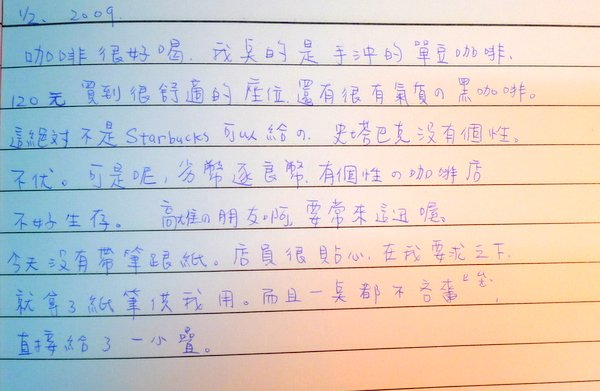 1/2, 2009.
咖啡很好喝. 我桌的是手沖的單豆咖啡.
120元 買到很舒適的座位. 還有很有氣質の黑咖啡。
這絕对不是Starbucks 可以給の. 史塔巴克沒有個性。
不优。可是呢, 劣幣逐良幣. 有個性の咖啡店
不好生存。 高雄の朋友啊, 要常來這逛喔.
今天沒有帶筆跟紙。店員很貼心. 在我要求之下.
就拿了紙筆供我用。而且一桌都不吝嗇
直接給了一小疊。